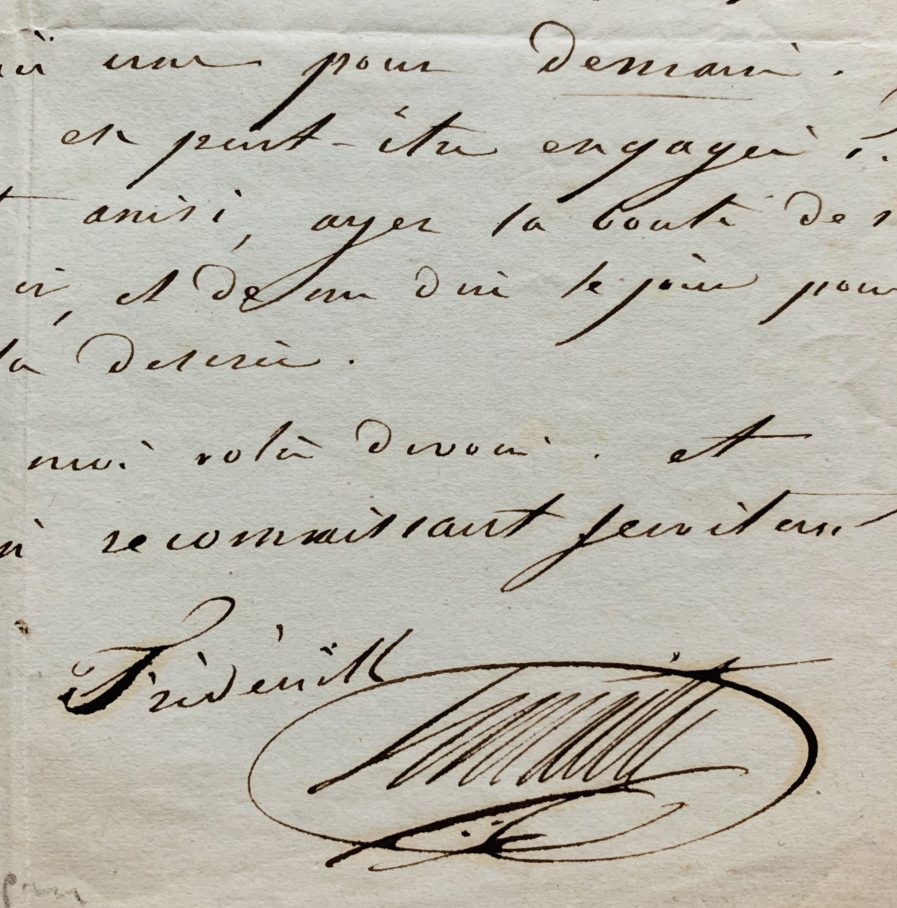 une pour demain.
est peut-être engagée ?
ainsi, ayez la bonté de
et de me dire le jour pour
desirée.
moi votre devoué. et
reconnaissant serviteur
Frédérick
Lemaitre